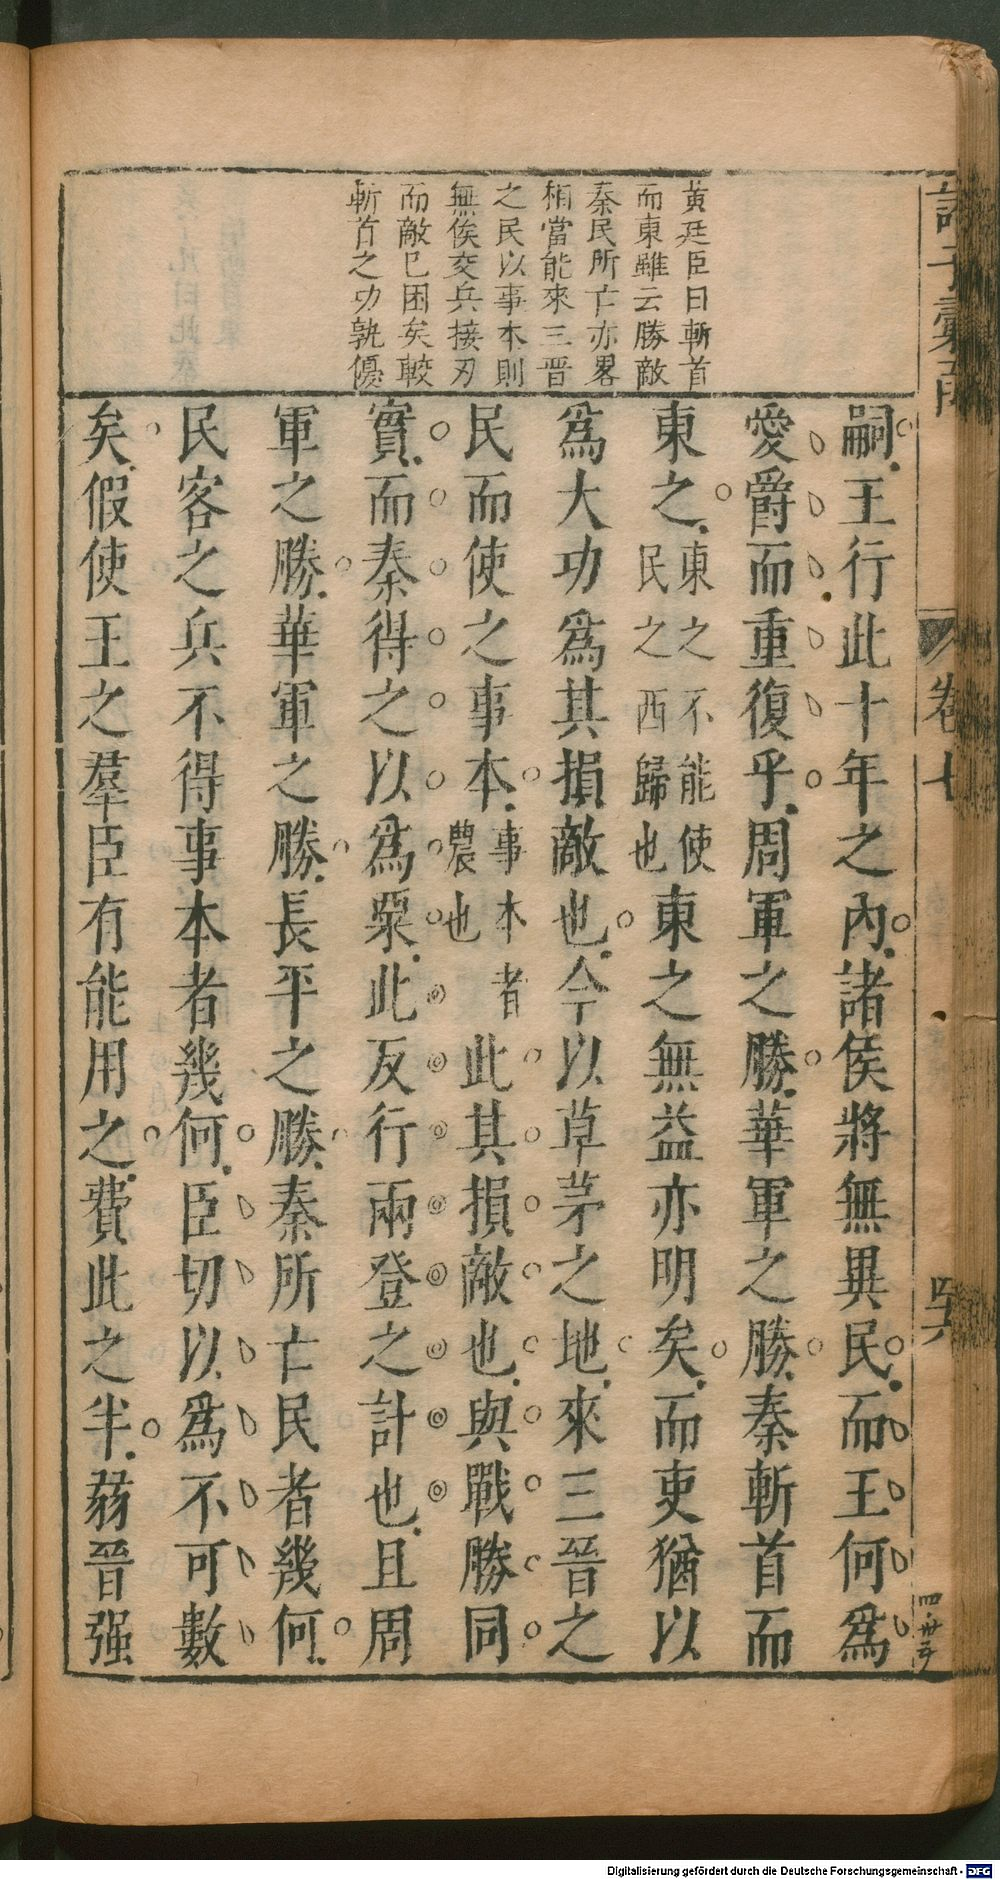 黃廷臣曰斬首
而東雖云勝敵
秦民所亡亦畧
相當能來三晉
之民以事本則
無俟交兵接刃
而敵已困矣較
斬首之功孰優
嗣王行此十年之內諸侯將無異民而王何爲
愛爵而重復乎周軍之勝華軍之勝秦斬首而
東之東之不能使民之西歸也東之無益亦明矣而吏猶以
爲大功爲其損敵也今以草茅之地來三晉之
民而使之事本事本者農也此其損敵也與戰勝同
實而秦得之以爲粟此反行兩登之計也且周
軍之勝華軍之勝長平之勝秦所亡民者幾何
民客之兵不得事本者幾何臣切以爲不可數
矣假使王之羣臣有能用之費此之半弱晉强
卷七
四十六
Digitalisierung gefördert durch die Deutsche Forschungsgemeinschaft - DFG